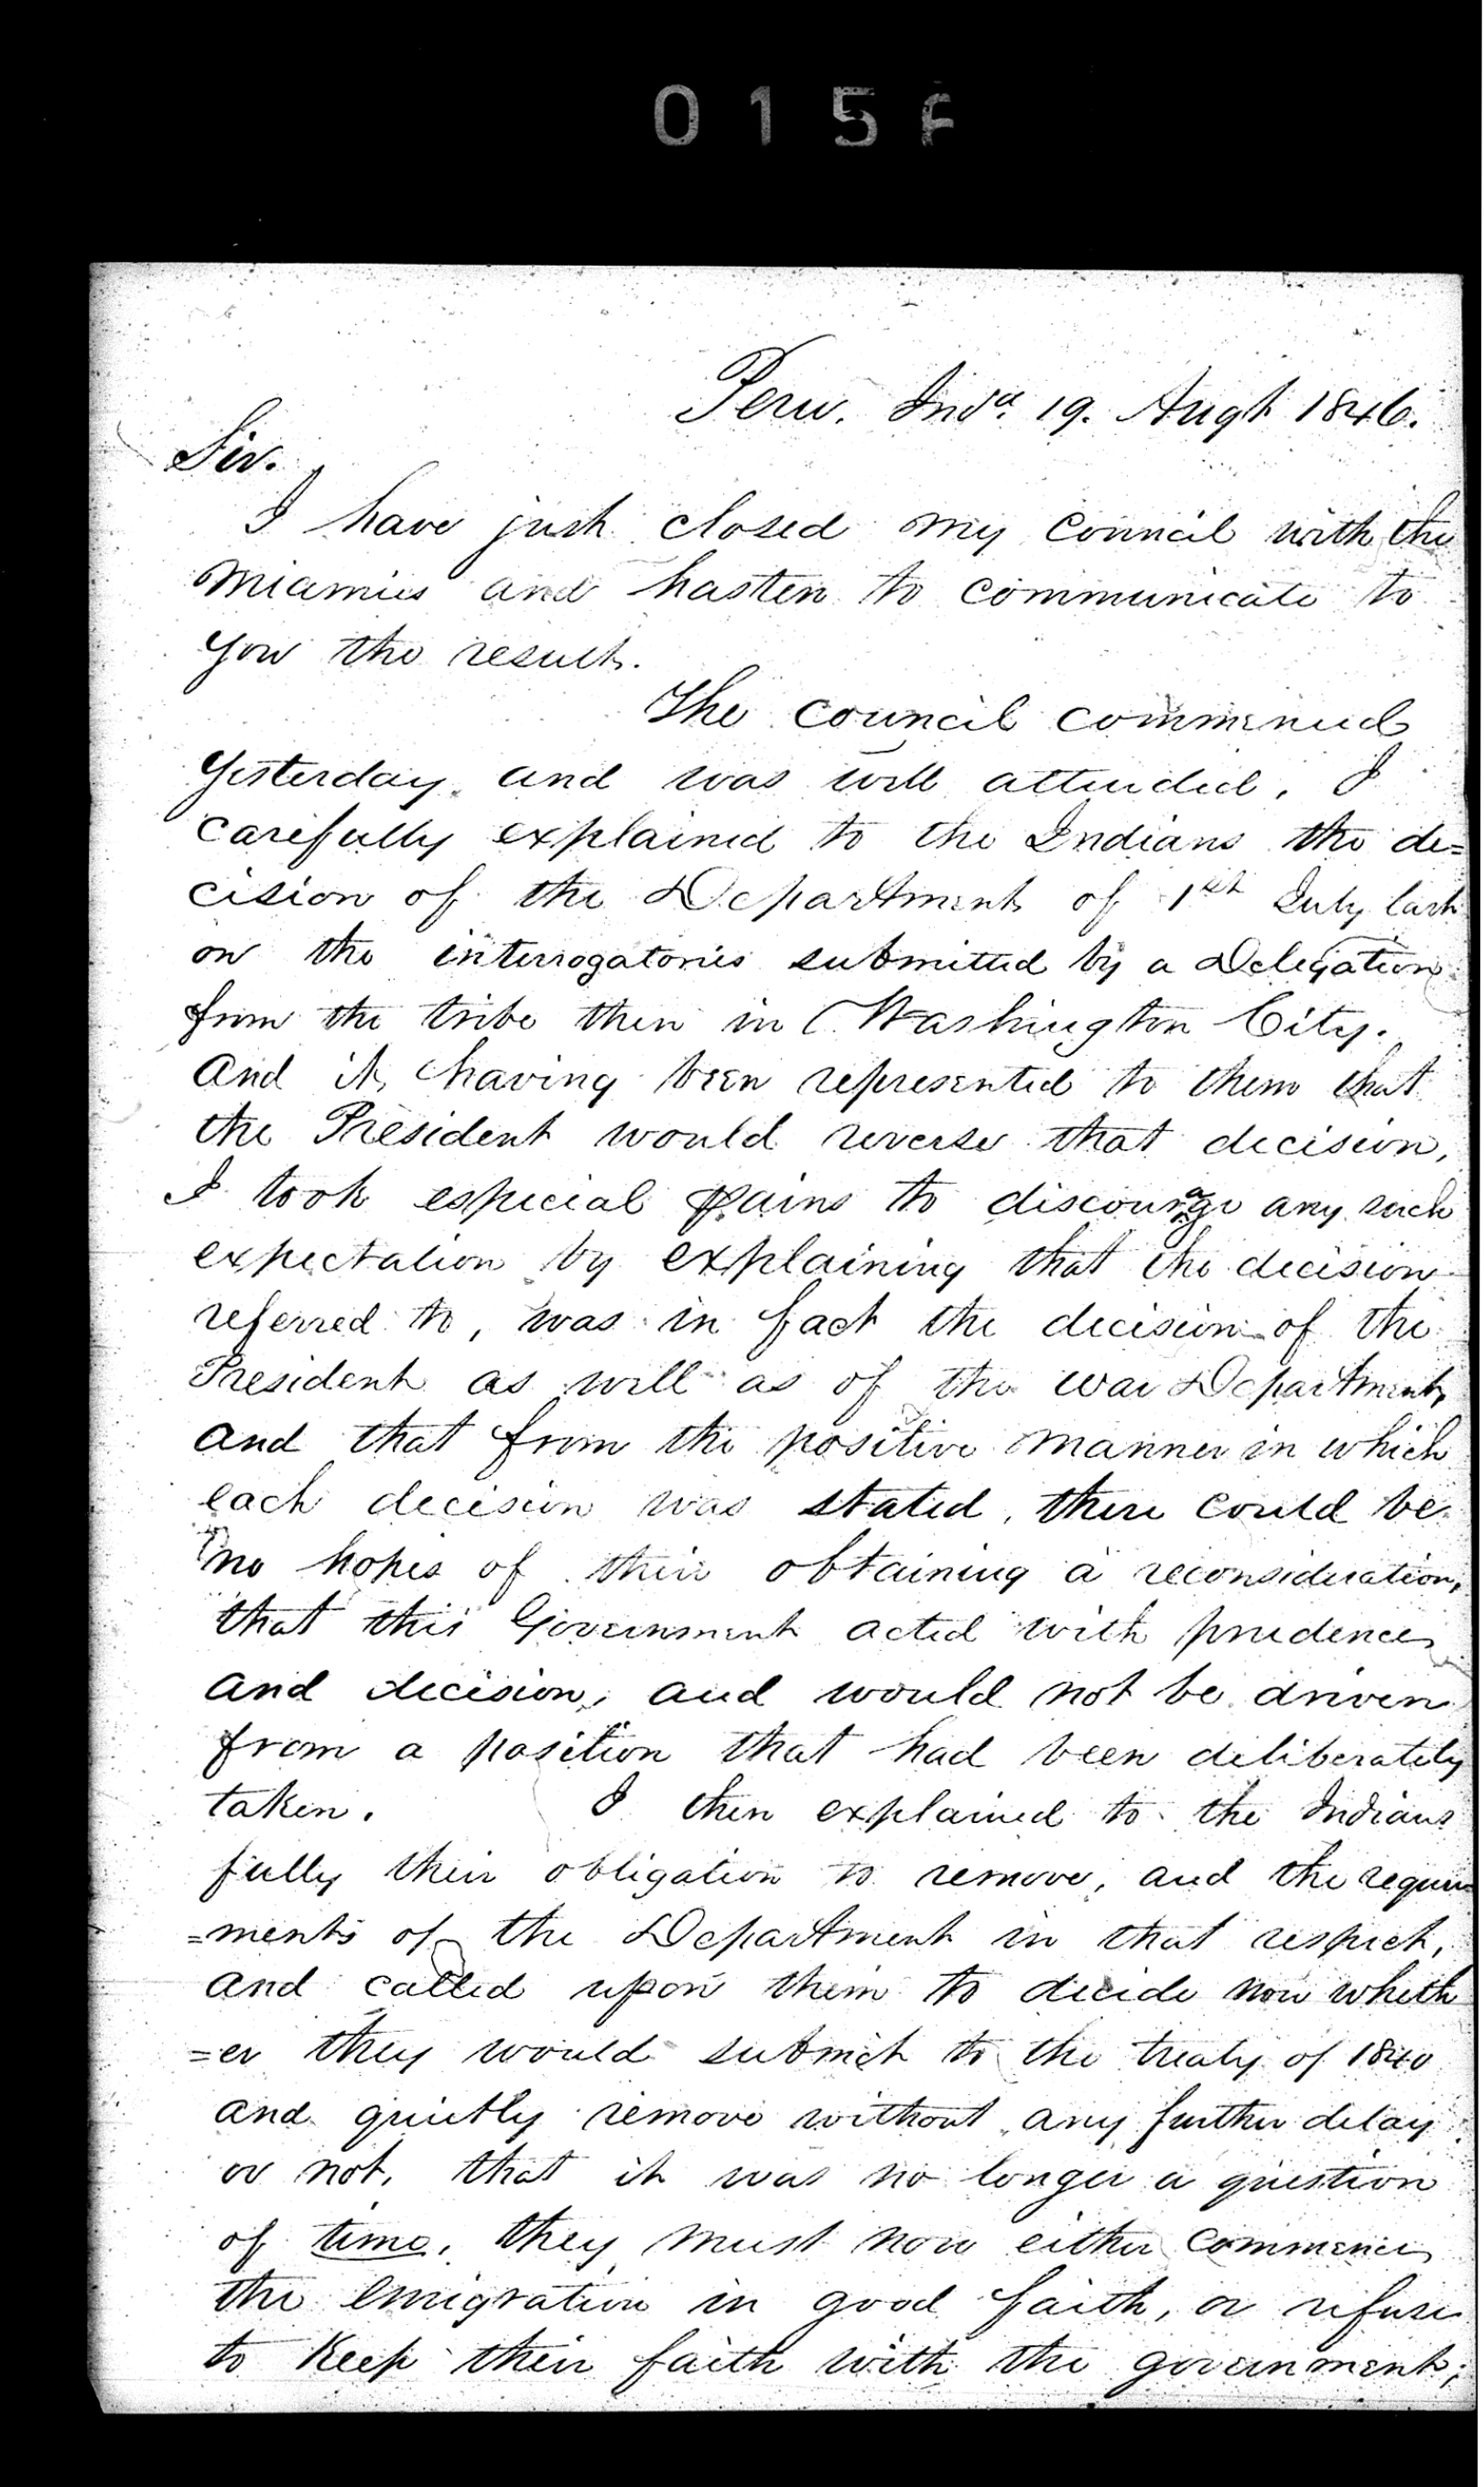 015
Peru. Inda. 19. Augt 1846.
Sir.
I have just closed my Council with the
Miamies and hasten to communicate to
you the result.
The council commenced
yesterday and was well attended. I
carefully explained to the Indians the de=
cision of the Department of 1st July last
on the interrogatories submitted by a Delegation
from the tribe then in Washington City.
and it having been represented to them that
the President would reverse that decision,
I took especial pains to discourage any such
expectation by explaining that the decision
referred to, was in fact the decision of the
President as well as of the war Department,
and that from the positive manner in which
each decision was stated, there could be
no hopes of their obtaining a reconsideration,
that this Government acted with prudence
and decision, and would not be driven
from a position that had been deliberately
taken. I then explained to the Indians
fully their obligation to remove, and the require
=ments of the Department in that respect,
and called upon them to decide now wheth
=er they would submit to the treaty of 1840
and quietly remove without any further delay
or not, that it was no longer a question
of time, they must now either commence
the emigration in good faith, or refuse
to keep their faith with the government;